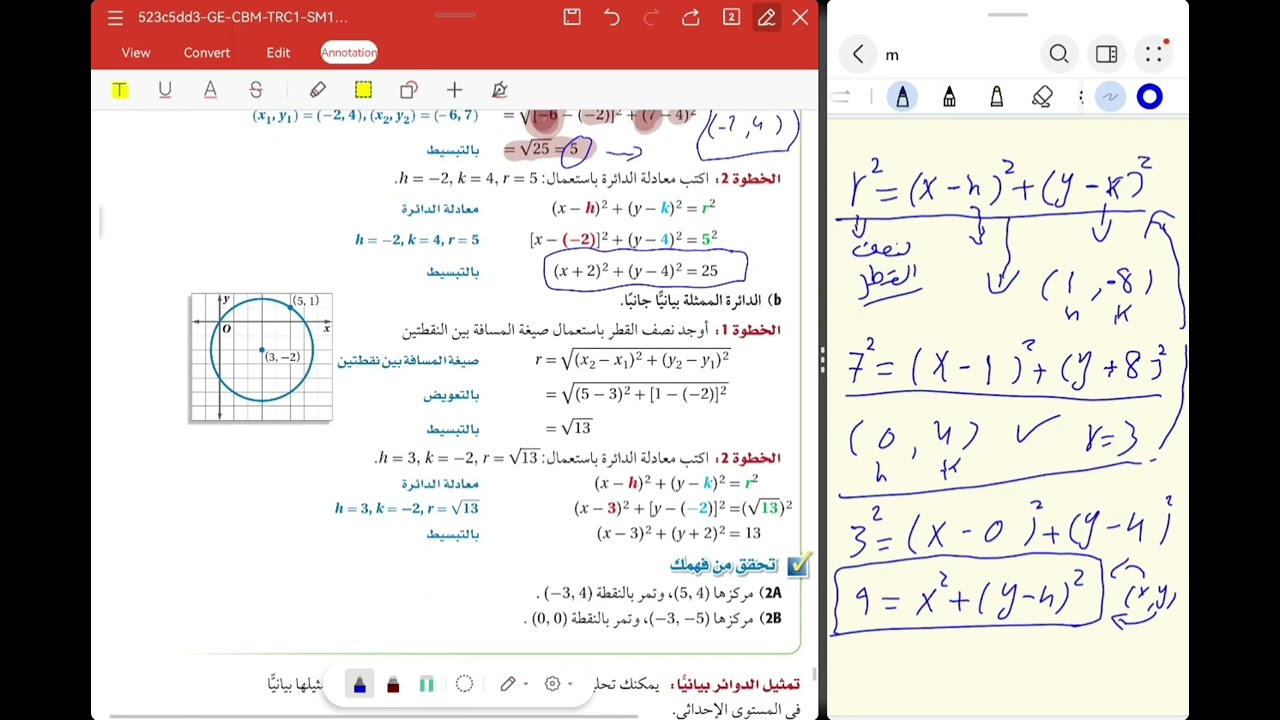 523c5dd3-GE-CBM-TRC1-SM1...
View Convert Edit Annotation
(x₁, y₁) = (−2, 4), (x₂, y₂) = (−6, 7) = √[−6 − (−2)]² + (7 − 4)²
(-2, 4)
بالتبسيط = √25 = 5
الخطوة 2: اكتب معادلة الدائرة باستعمال: h = −2, k = 4, r = 5.
معادلة الدائرة (x − h)² + (y − k)² = r²
h = −2, k = 4, r = 5 [x − (−2)]² + (y − 4)² = 5²
بالتبسيط (x + 2)² + (y − 4)² = 25
b) الدائرة الممثلة بيانيًّا جانبًا.
الخطوة 1: أوجد نصف القطر باستعمال صيغة المسافة بين النقطتين
صيغة المسافة بين نقطتين r = √(x₂ − x₁)² + (y₂ − y₁)²
بالتعويض = √(5 − 3)² + [1 − (−2)]²
بالتبسيط = √13
y
(5, 1)
O
x
(3, −2)
الخطوة 2: اكتب معادلة الدائرة باستعمال: h = 3, k = −2, r = √13.
معادلة الدائرة (x − h)² + (y − k)² = r²
h = 3, k = −2, r = √13 (x − 3)² + [y − (−2)]² = (√13)²
بالتبسيط (x − 3)² + (y + 2)² = 13
تحقق من فهمك
2A) مركزها (5, 4)، وتمر بالنقطة (−3, 4) .
2B) مركزها (−3, −5)، وتمر بالنقطة (0, 0) .
تمثيل الدوائر بيانيًّا: يمكنك تحلي
ثيلها بيانيًّا
في المستوى الإحداثي.
m
r² = (x-h)² + (y-k)²
نصف
القطر
(1, -8)
h k
7² = (x-1)² + (y+8)²
(0, 4) ✓ r=3
h k
3² = (x-0)² + (y-4)²
9 = x² + (y-4)²
(x,y)